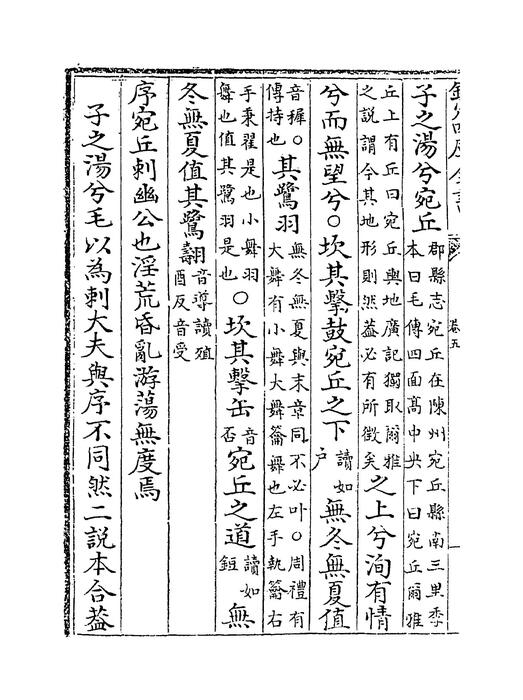 欽定四庫全書 卷五
子之湯兮宛丘郡縣志宛丘在陳州宛丘縣南三里季本曰毛傳四面高中央下曰宛丘爾雅
丘上有丘曰宛丘輿地廣記獨取爾雅之説謂今其地形則然葢必有所徵矣之上兮洵有情
兮而無望兮○坎其擊鼓宛丘之下讀如户無冬無夏值
音穉○傳持也其鷺羽無冬無夏與末章同不必叶○周禮有大舞有小舞大舞籥舞也左手執籥右
手秉翟是也小舞羽舞也值其鷺羽是也○坎其擊缶音否宛丘之道讀如無
冬無夏值其鷺翿音導讀殖酉反音受
序宛丘刺幽公也淫荒昏亂游蕩無度焉
子之湯兮毛以為刺大夫與序不同然二説本合葢